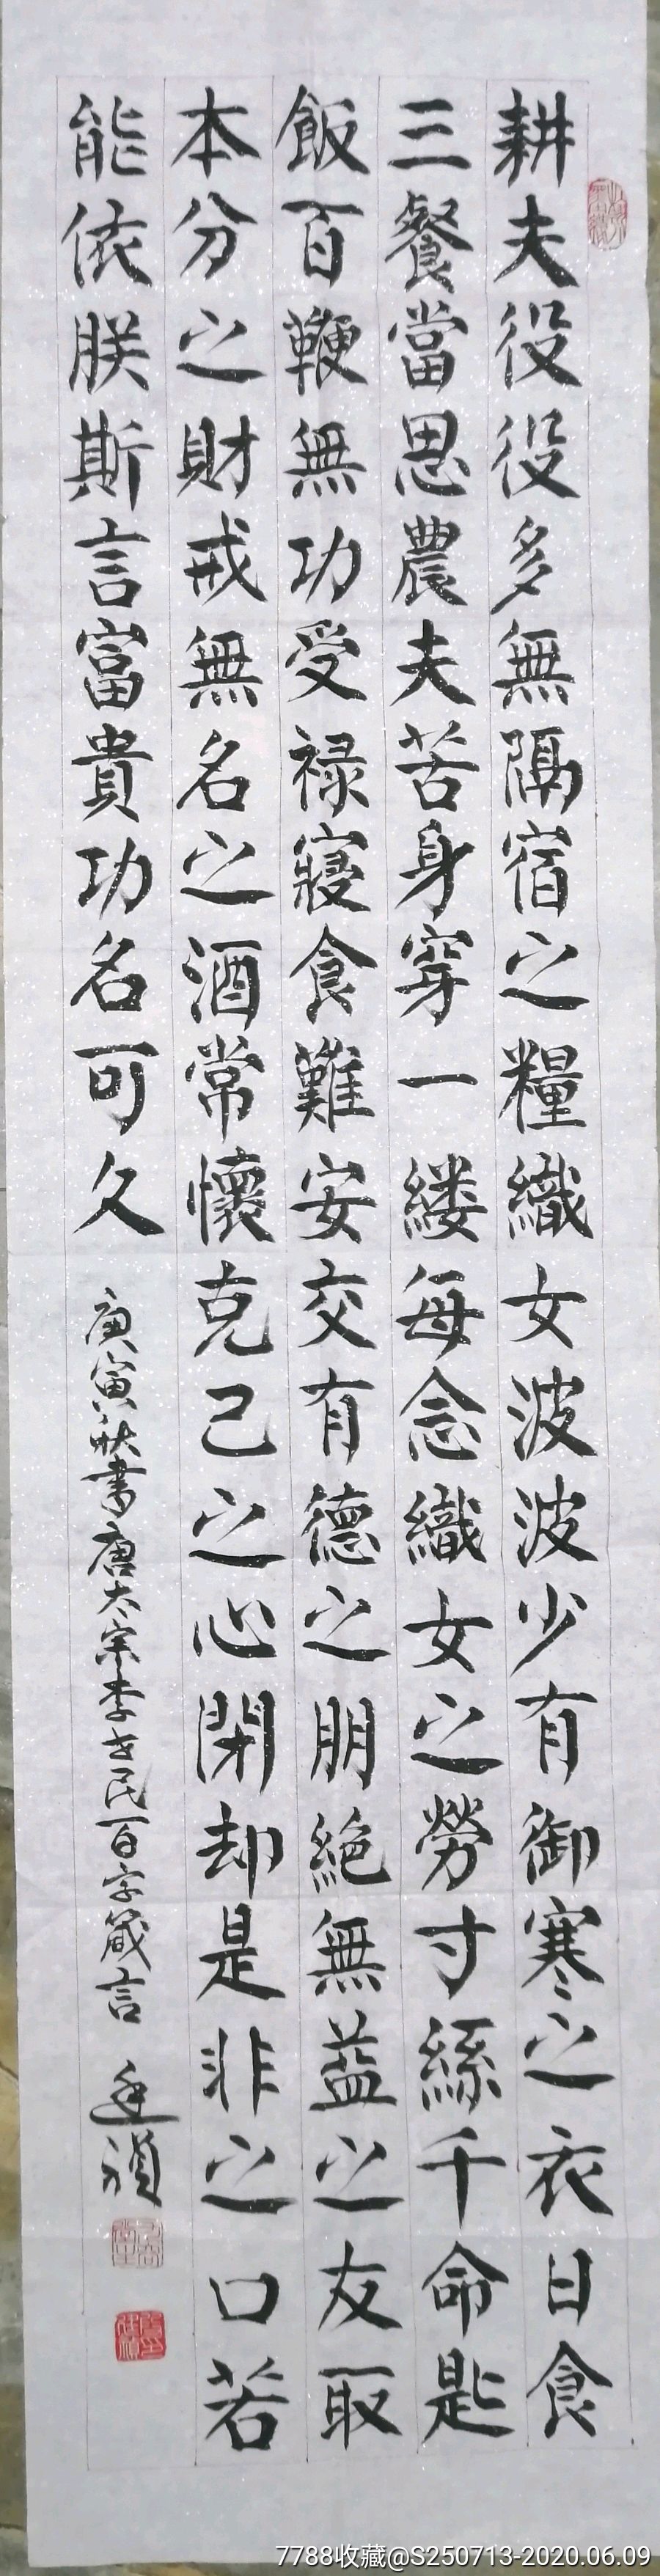 耕夫役役多無隔宿之糧織女波波少有御寒之衣日食
三餐當思農夫苦身穿一縷每念織女之勞寸絲千命匙
飯百鞭無功受禄寢食難安交有德之朋絕無益之友取
本分之財戒無名之酒常懷克己之心閉却是非之口若
能依朕斯言富貴功名可久
庚寅秋書唐太宗李世民百字箴言
7788收藏@S250713-2020.06.09